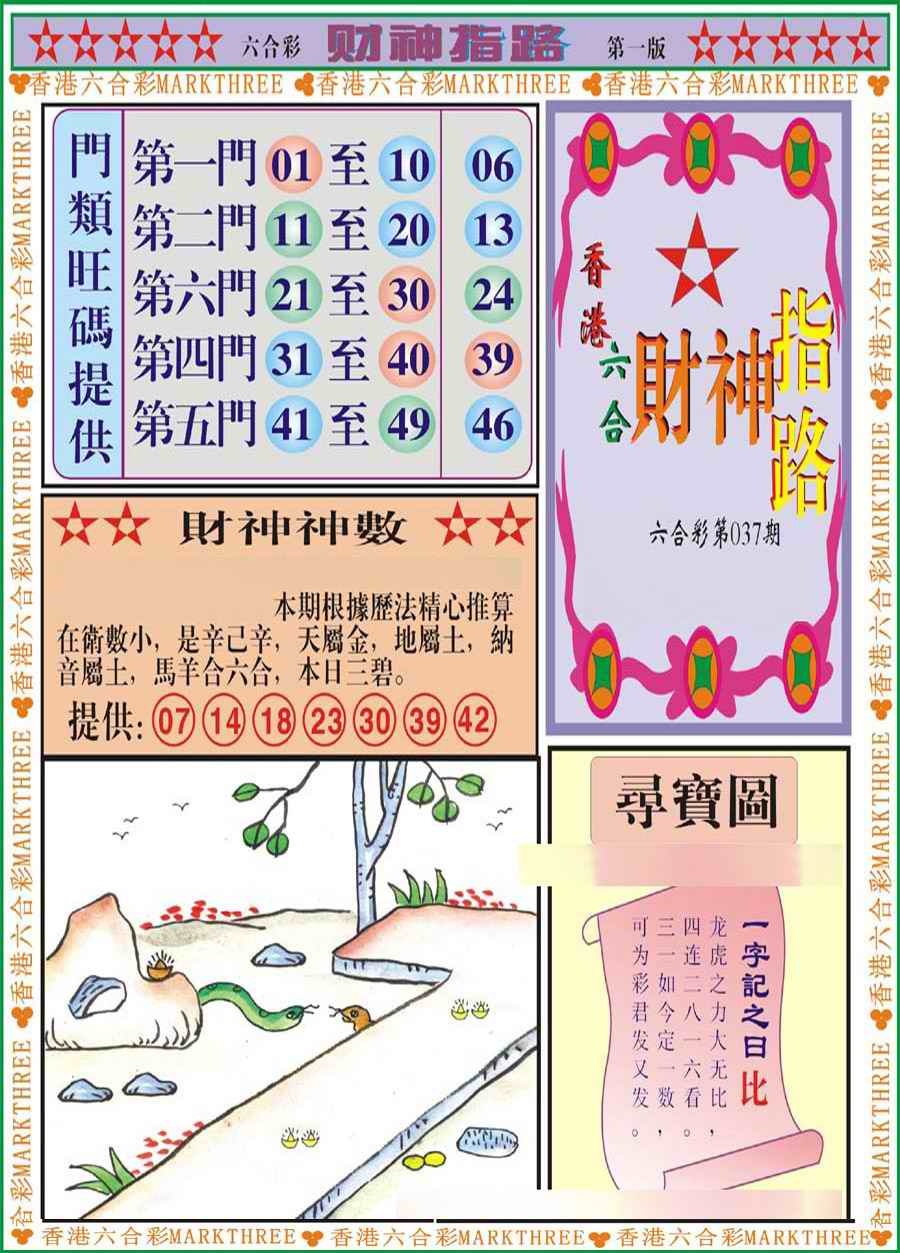 六合彩 财神指路 第一版
香港六合彩MARKTHREE 香港六合彩MARKTHREE 香港六合彩MARKTHREE
門類旺碼提供
第一門 01 至 10 06
第二門 11 至 20 13
第六門 21 至 30 24
第四門 31 至 40 39
第五門 41 至 49 46
香港六合
財神
指路
六合彩第037期
財神神數
本期根據歷法精心推算
在衛數小，是辛己辛，天屬金，地屬土，納
音屬土，馬羊合六合，本日三碧。
提供: 07 14 18 23 30 39 42
尋寶圖
一字記之曰比
龙虎之力大无比，
四连二八一六看。
三一如今定一数，
可为彩君发又发。
香港六合彩MARKTHREE 香港六合彩MARKTHREE 香港六合彩MARKTHREE 彩MARKTHREE
香港六合彩MARKTHREE 香港六合彩MARKTHREE 香港六合彩MARKTHREE 合彩MARKTHREE
香港六合彩MARKTHREE 香港六合彩MARKTHREE 香港六合彩MARKTHREE